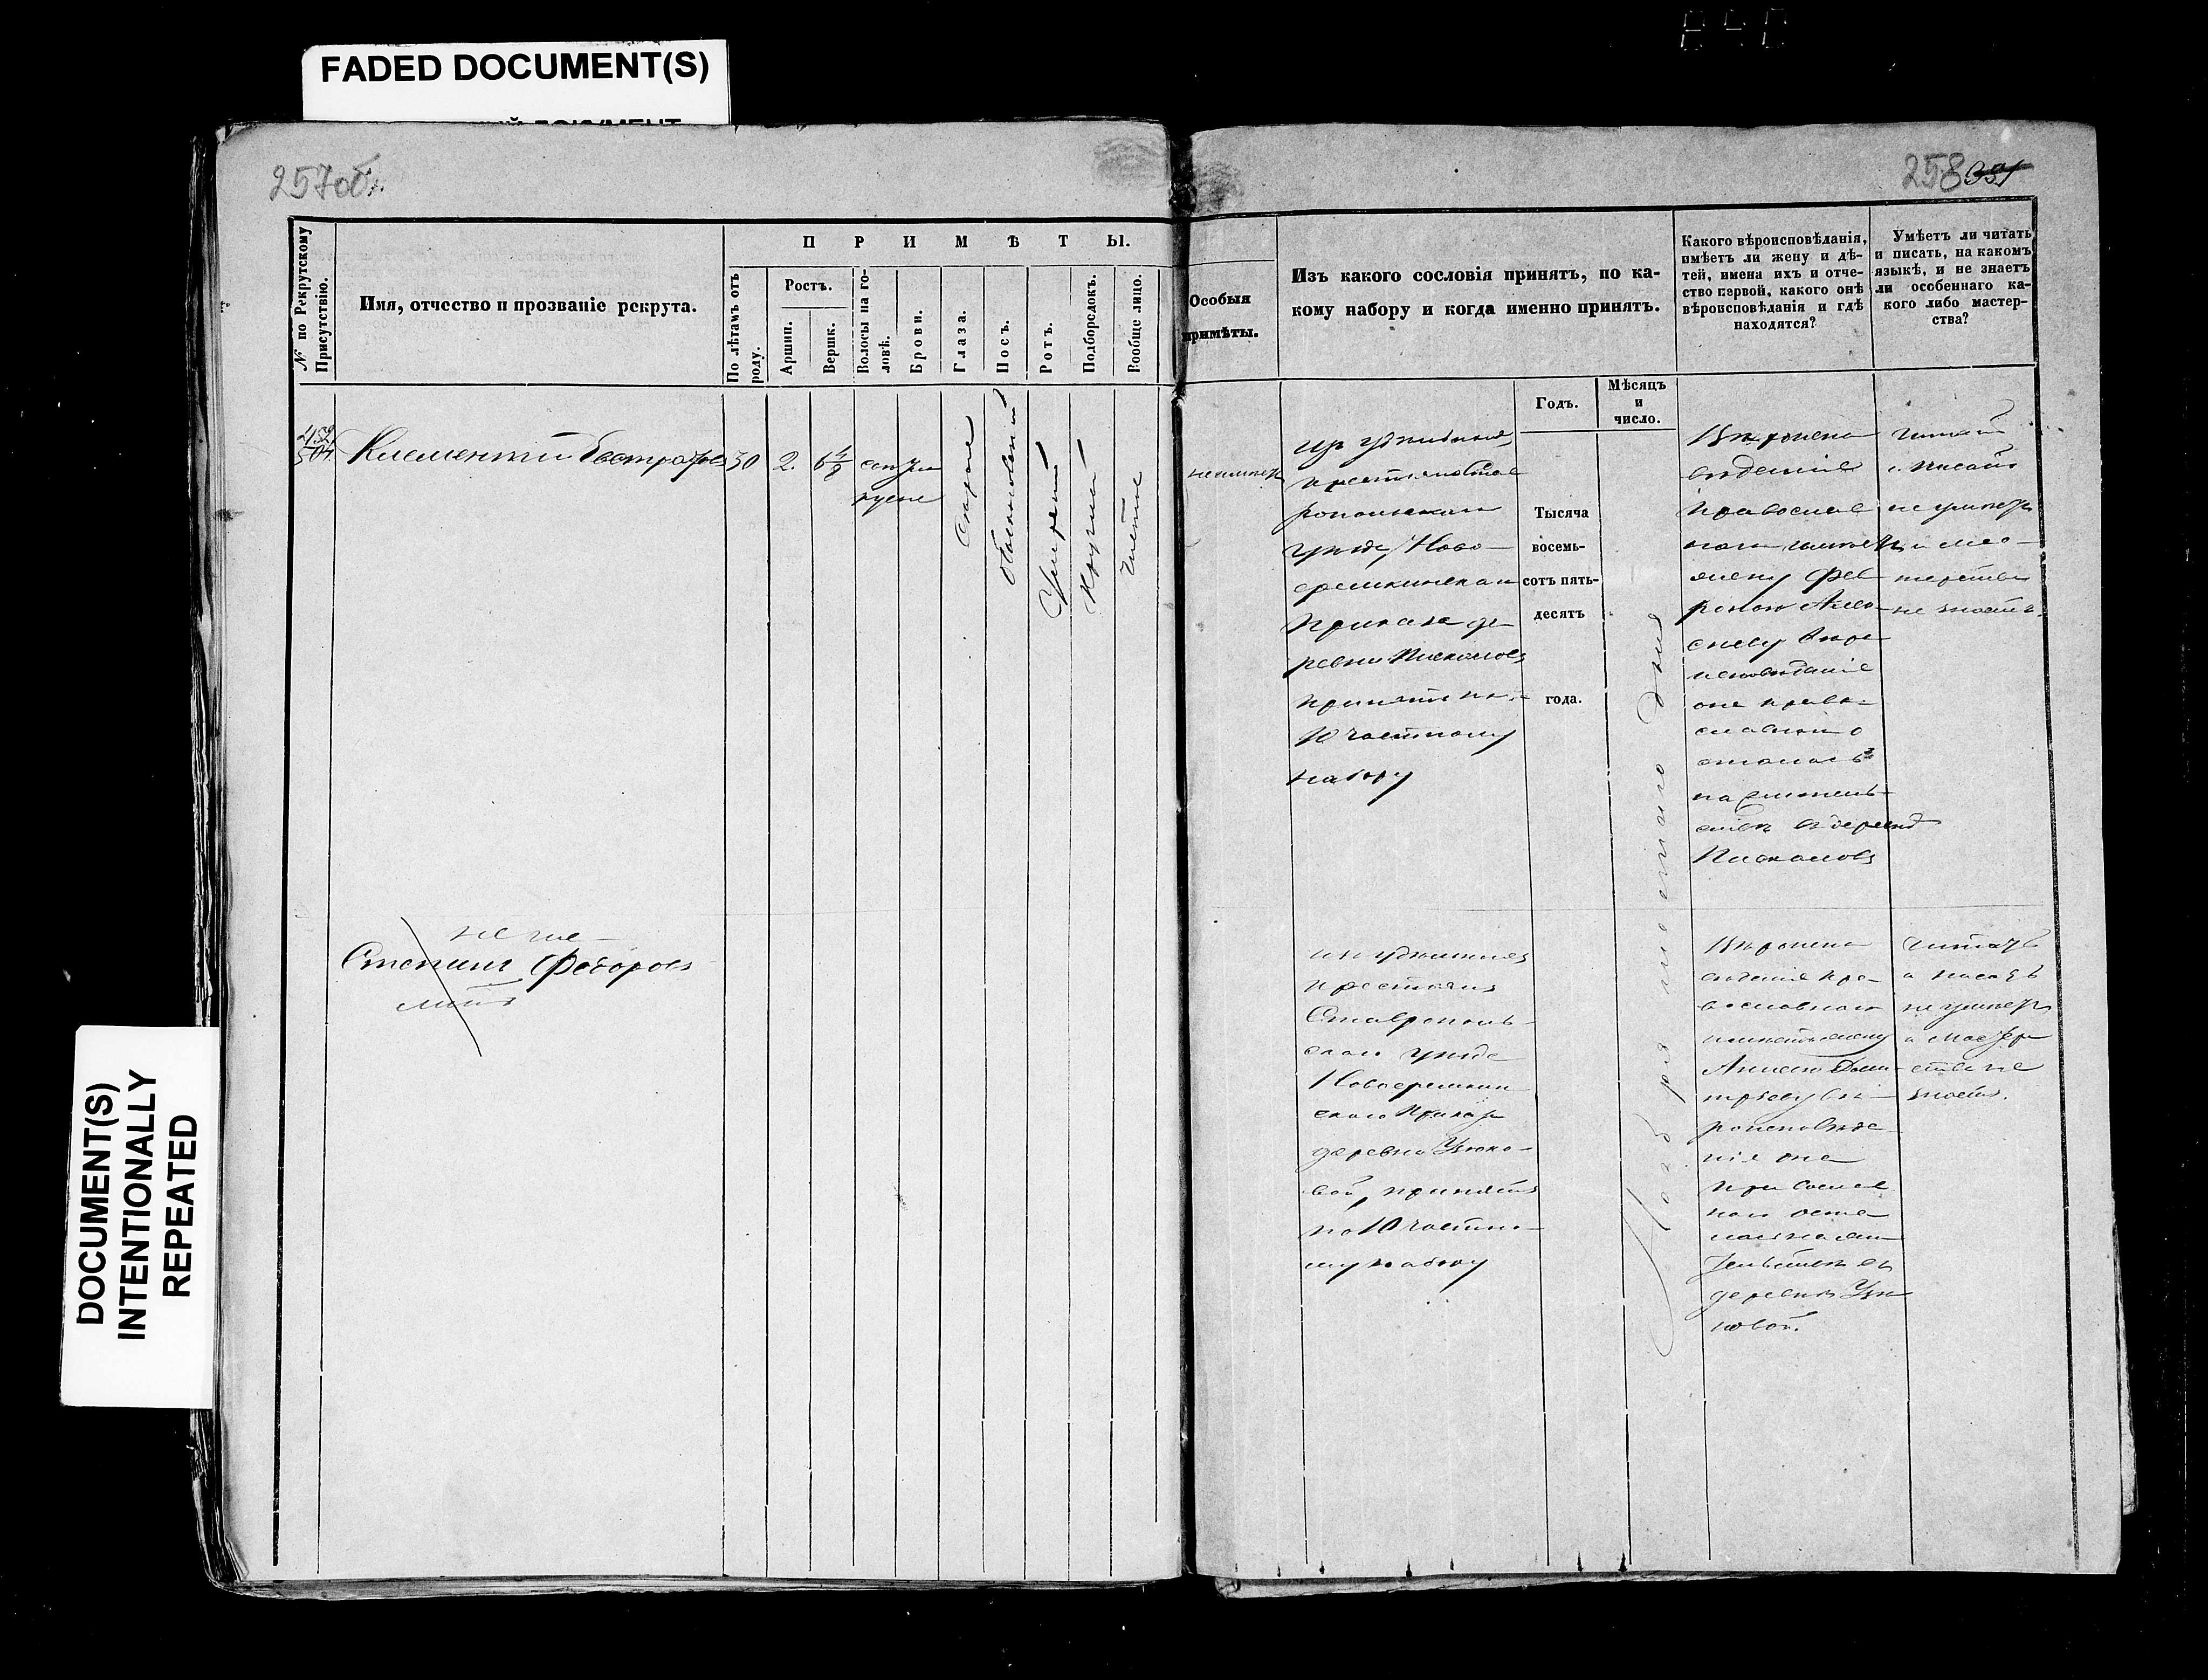 FADED DOCUMENT(S)
257об.
258 331
№ по Рекрутскому Присутствію.
Имя, отчество и прозваніе рекрута.
ПРИМѢТЫ.
По лѣтамъ отъ роду.
Ростъ.
Аршин.
Вершк.
Волосы на головѣ.
Брови.
Глаза.
Носъ.
Ротъ.
Подбородокъ.
Вообще лицо.
Особыя
примѣты.
Изъ какого сословія принятъ, по ка-
кому набору и когда именно принятъ.
Годъ.
Мѣсяцъ
и
число.
Какого вѣроисповѣданія,
имѣетъ ли жену и дѣ-
тей, имена ихъ и отче-
ство первой, какого онѣ
вѣроисповѣданія и гдѣ
находятся?
Умѣетъ ли читать
и писать, на какомъ
языкѣ, и не знаетъ
ли особеннаго ка-
кого либо мастер-
ства?
Клементий
30
2.
6 4/8
русые
серые
обыкновенный
Умѣрен
Круглый
Чистое
не имеет
из удельных
крестьян Став
ропольскаго
уезда Ново
еремкинскаго
Приказа де
ревни Пискалов
принят по
10 частному
набору
Тысяча
восемь-
сотъ пять-
десятъ
года.
Ноября шестаго дня
Вероиспо
ведания
Православ
наго имеет
жену Фев
ронью Алек
сееву веро
исповедание
она право
славнаго
осталась
на жительстве
в деревне
Пискаловой
читать
и писать
не умеет
и мас
терства
не знает.
Степан Федоров
из удельных
крестьян
Ставрополь
скаго уезда
Новоеремкин
скаго Приказа
деревни Узюко
вой, принят
по 10 частно
му набору
Вероиспо
ведания пра
вославнаго
имеет жену
Анисью Дми
триеву ве
роисповеда
ние она
Православ
наго оста
лась на жи
тельстве в
деревне Узю
ковой.
читать
и писать
не умеет
и мастер
ства не
знает.
DOCUMENT(S)
INTENTIONALLY
REPEATED